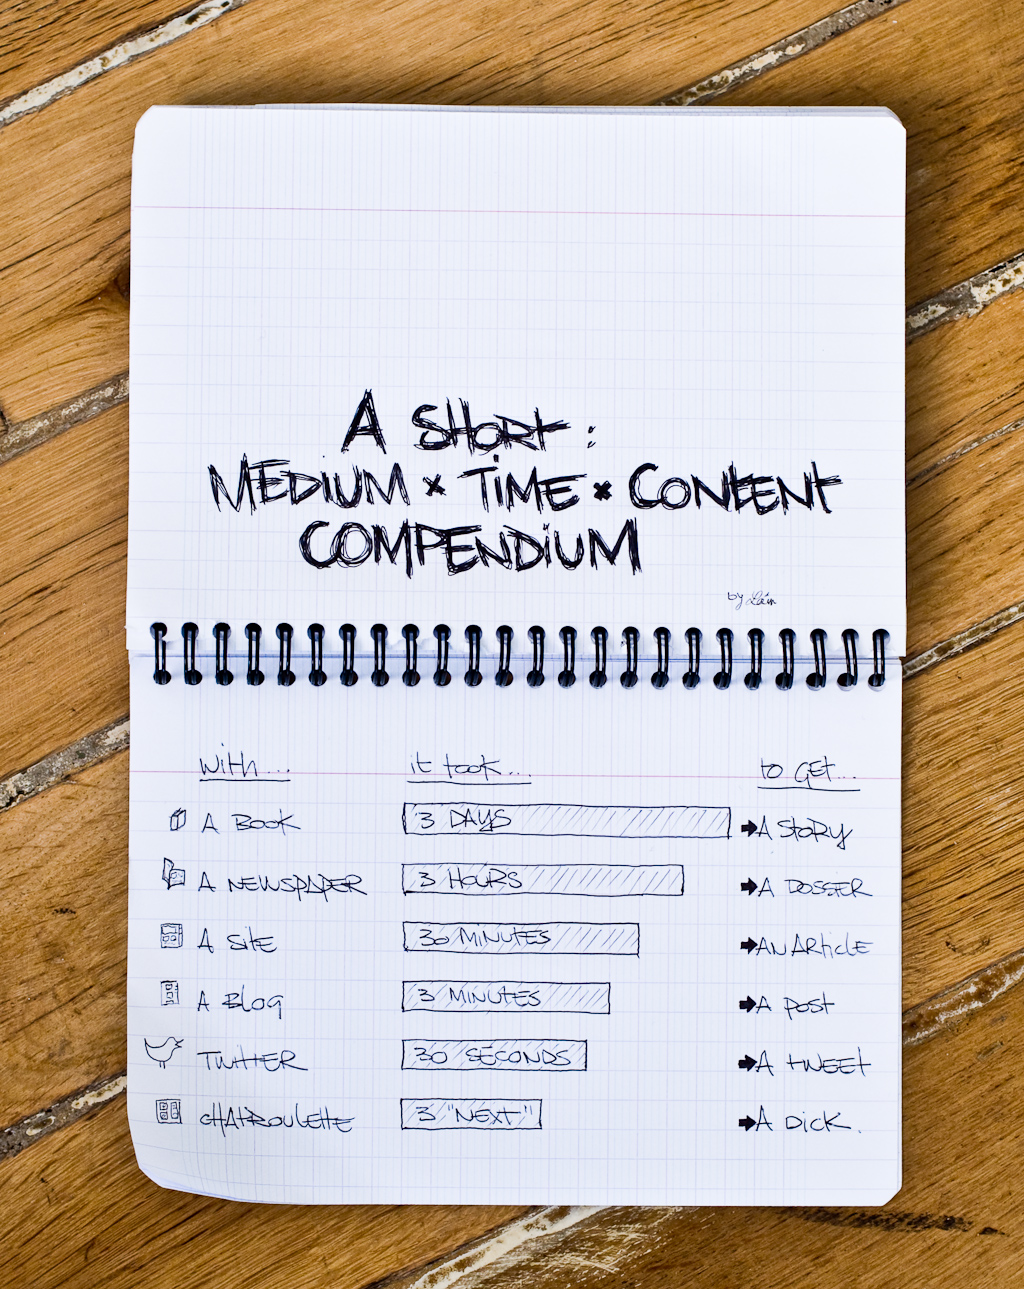 A SHORT:
MEDIUM × TIME × CONTENT
COMPENDIUM
by Laïn
with... it took... to GET...
A BOOK 3 DAYS A STORY
A NEWSPAPER 3 HOURS A DOSSIER
A SITE 30 MINUTES AN ARTICLE
A BLOG 3 MINUTES A POST
TWITTER 30 SECONDS A TWEET
CHATROULETTE 3 "NEXT" A DICK.